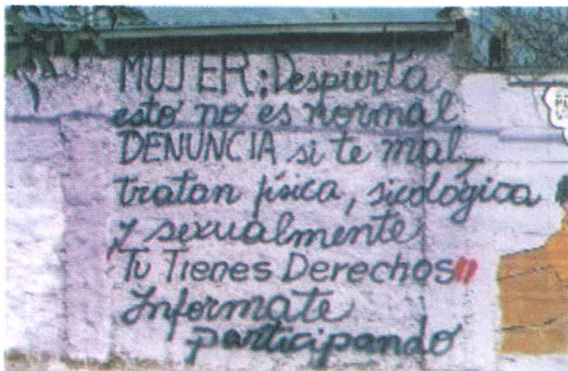 MUJER: Despierta
esto no es normal
DENUNCIA si te mal-
tratan física, sicológica
y sexualmente
Tu Tienes Derechos
Informate
participando